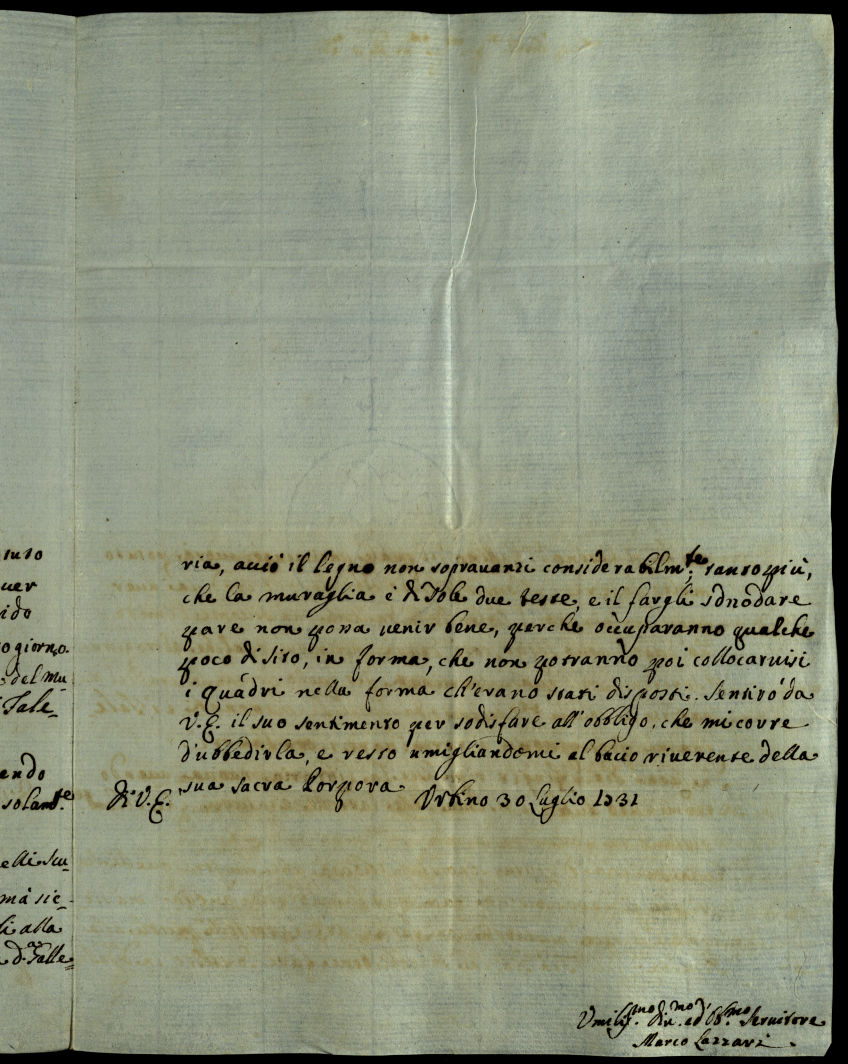 tuto
uer
ido
o giorno.
del mu_
Sale_
endo
solam.te
elli scu_
mà sie_
li alla
d.a Galle_
ria, acciò il legno non sopravanzi considerabilm.te, tanto più,
che la muraglia è di sole due teste, e il fargli
pare non possa venir bene, perche occuparanno qualche
poco di sito, in forma, che non potranno poi collocarvisi
i quadri nella forma ch'erano stati disposti. Sentirò da
V.E. il suo sentimento per sodisfare all'obbligo, che mi corre
d'ubbedirla, e resto umigliandomi al bacio riverente della
sua sacra Porpora
Di V.E. Urbino 30 Luglio 1731
Umiliss.mo Div.mo ed Obb.mo Servitore
Marco Lazzari